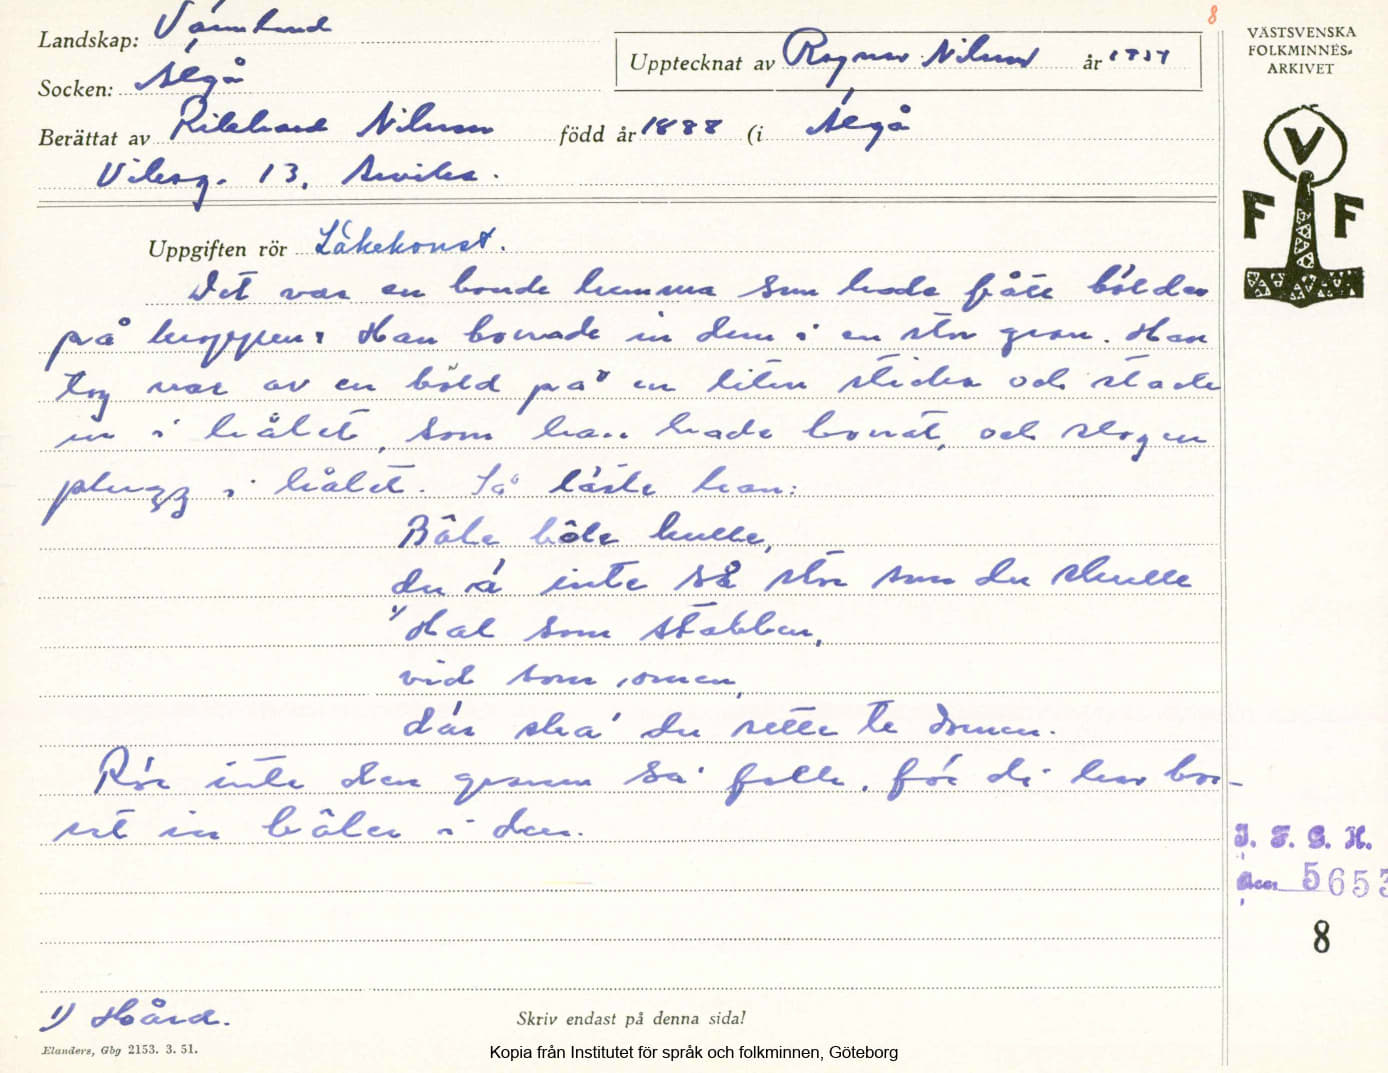 8
Landskap: Värmland
Socken: Älgå
Upptecknat av Ragnar Nilsson år 1957
Berättat av Rikhard Nilsson född år 1888 (i Älgå
Vikeng. 13, Arvika.
VÄSTSVENSKA
FOLKMINNES-
ARKIVET
V
F F
Uppgiften rör Läkekonst.
Det var en bonde hemma som hade fått bölder
på kroppen. Han borrade in dem i en stor gran. Han
tog var av en böld på en liten sticka och stack
in i hålet, som han hade borrat, och slog en
plugg i hålet. Så läste han:
Böle böle kulle,
du ä inte så stor som du skulle
1) Hal som stabben,
vid som omen,
där ska du sette te domen.
Rör inte den granen sa folk, för di har bor-
rat in böler i den.
I. F. G. H.
Acc. 5653
8
1) Hård.
Skriv endast på denna sida!
Elanders, Gbg 2153. 3. 51.
Kopia från Institutet för språk och folkminnen, Göteborg